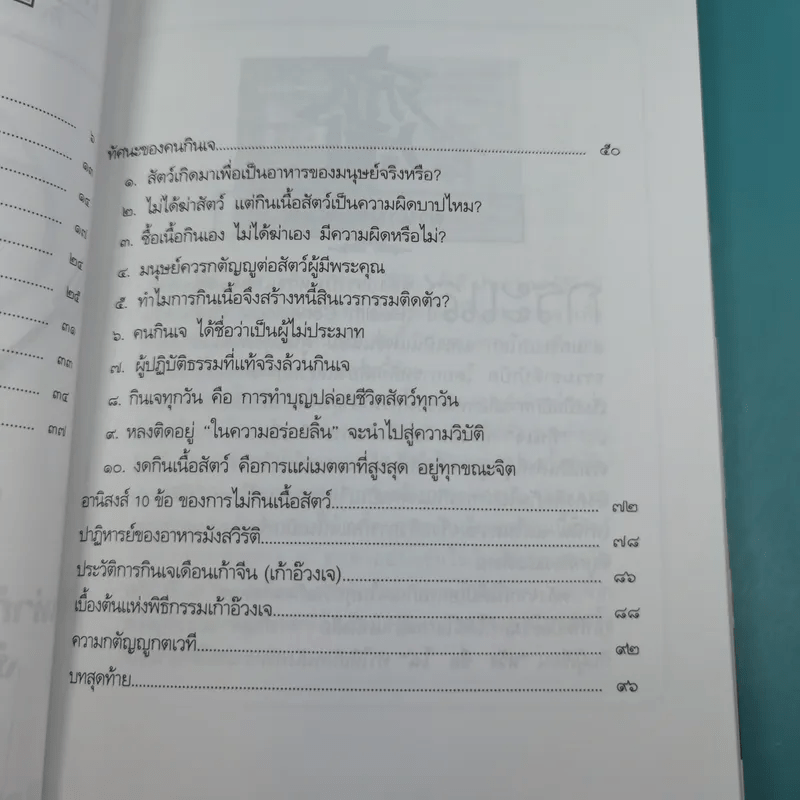 ๖
๑๓
๑๔
๑๗
๒๔
๒๕
๓๑
๓๓
๓๔
๓๗
ทัศนะของคนกินเจ............๕๐
๑. สัตว์เกิดมาเพื่อเป็นอาหารของมนุษย์จริงหรือ?
๒. ไม่ได้ฆ่าสัตว์ แต่กินเนื้อสัตว์เป็นความผิดบาปไหม?
๓. ซื้อเนื้อกินเอง ไม่ได้ฆ่าเอง มีความผิดหรือไม่?
๔. มนุษย์ควรกตัญญูต่อสัตว์ผู้มีพระคุณ
๕. ทำไมการกินเนื้อจึงสร้างหนี้สินเวรกรรมติดตัว?
๖. คนกินเจ ได้ชื่อว่าเป็นผู้ไม่ประมาท
๗. ผู้ปฏิบัติธรรมที่แท้จริงล้วนกินเจ
๘. กินเจทุกวัน คือ การทำบุญปล่อยชีวิตสัตว์ทุกวัน
๙. หลงติดอยู่ "ในความอร่อยลิ้น" จะนำไปสู่ความวิบัติ
๑๐. งดกินเนื้อสัตว์ คือการแผ่เมตตาที่สูงสุด อยู่ทุกขณะจิต
อานิสงส์ 10 ข้อ ของการไม่กินเนื้อสัตว์............๗๒
ปาฏิหารย์ของอาหารมังสวิรัติ............๗๘
ประวัติการกินเจเดือนเก้าจีน (เก้าอ๊วงเจ)............๘๖
เบื้องต้นแห่งพิธีกรรมเก้าอ๊วงเจ............๘๘
ความกตัญญูกตเวที............๙๒
บทสุดท้าย............๙๖